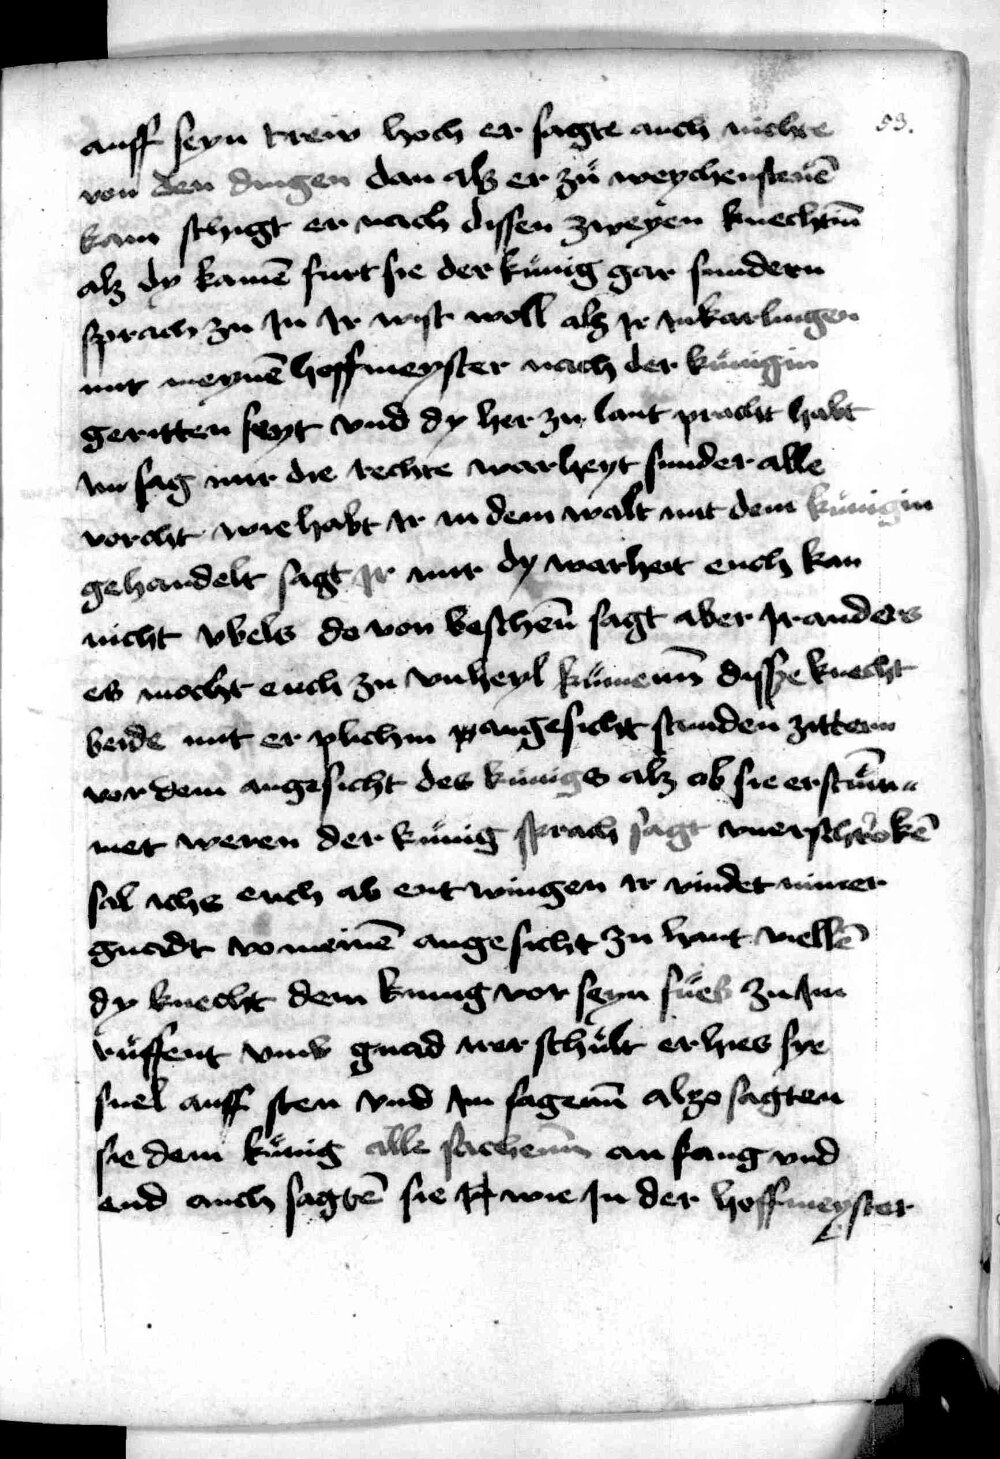 auff seyn trew hoch er sagte auch nichte 53.
von den dingen dan alz er zů weychensteuē
kam schigt er nach dissen zweyen knechtn̄
alz dy kamē furt sie der kůnig gar sundern
sprach zu In Ir wist woll alz Ir In karlingen
mit meynē hoffmeyster nach der kůnigin
geritten seyt vnd dy her zu lant pracht habt
nu sag mir die rechte warheyt sunder alle
vorcht wie habt Ir in dem walt mit dem kůnigin
gehandelt sagt Ir mir dy warheit euch kan
nicht vbels do von beschēn sagt aber Ir anders
es mocht euch zu vnheyl kůmenn̄ disse knecht
beide mit er plichm angesicht stunden zittern
vor dem angesicht des kůnigs alz ob sie erstům̄
met weren der kůnig sprach sagt vnerschrokē
sal ichs euch ab ent wingen ir vindet nimer
gnadt vo meinē angesicht zu hant viellē
dy knecht dem kunig vor seyn fůes zu Im
růffent vmb gnad irer schůlt er hies sye
snel auff sten vnd Im sagenn̄ alzo sagten
sie dem kůnig alle sachenn̄ an fang vnd
end auch sagtē sie wie In der hoffmeyster